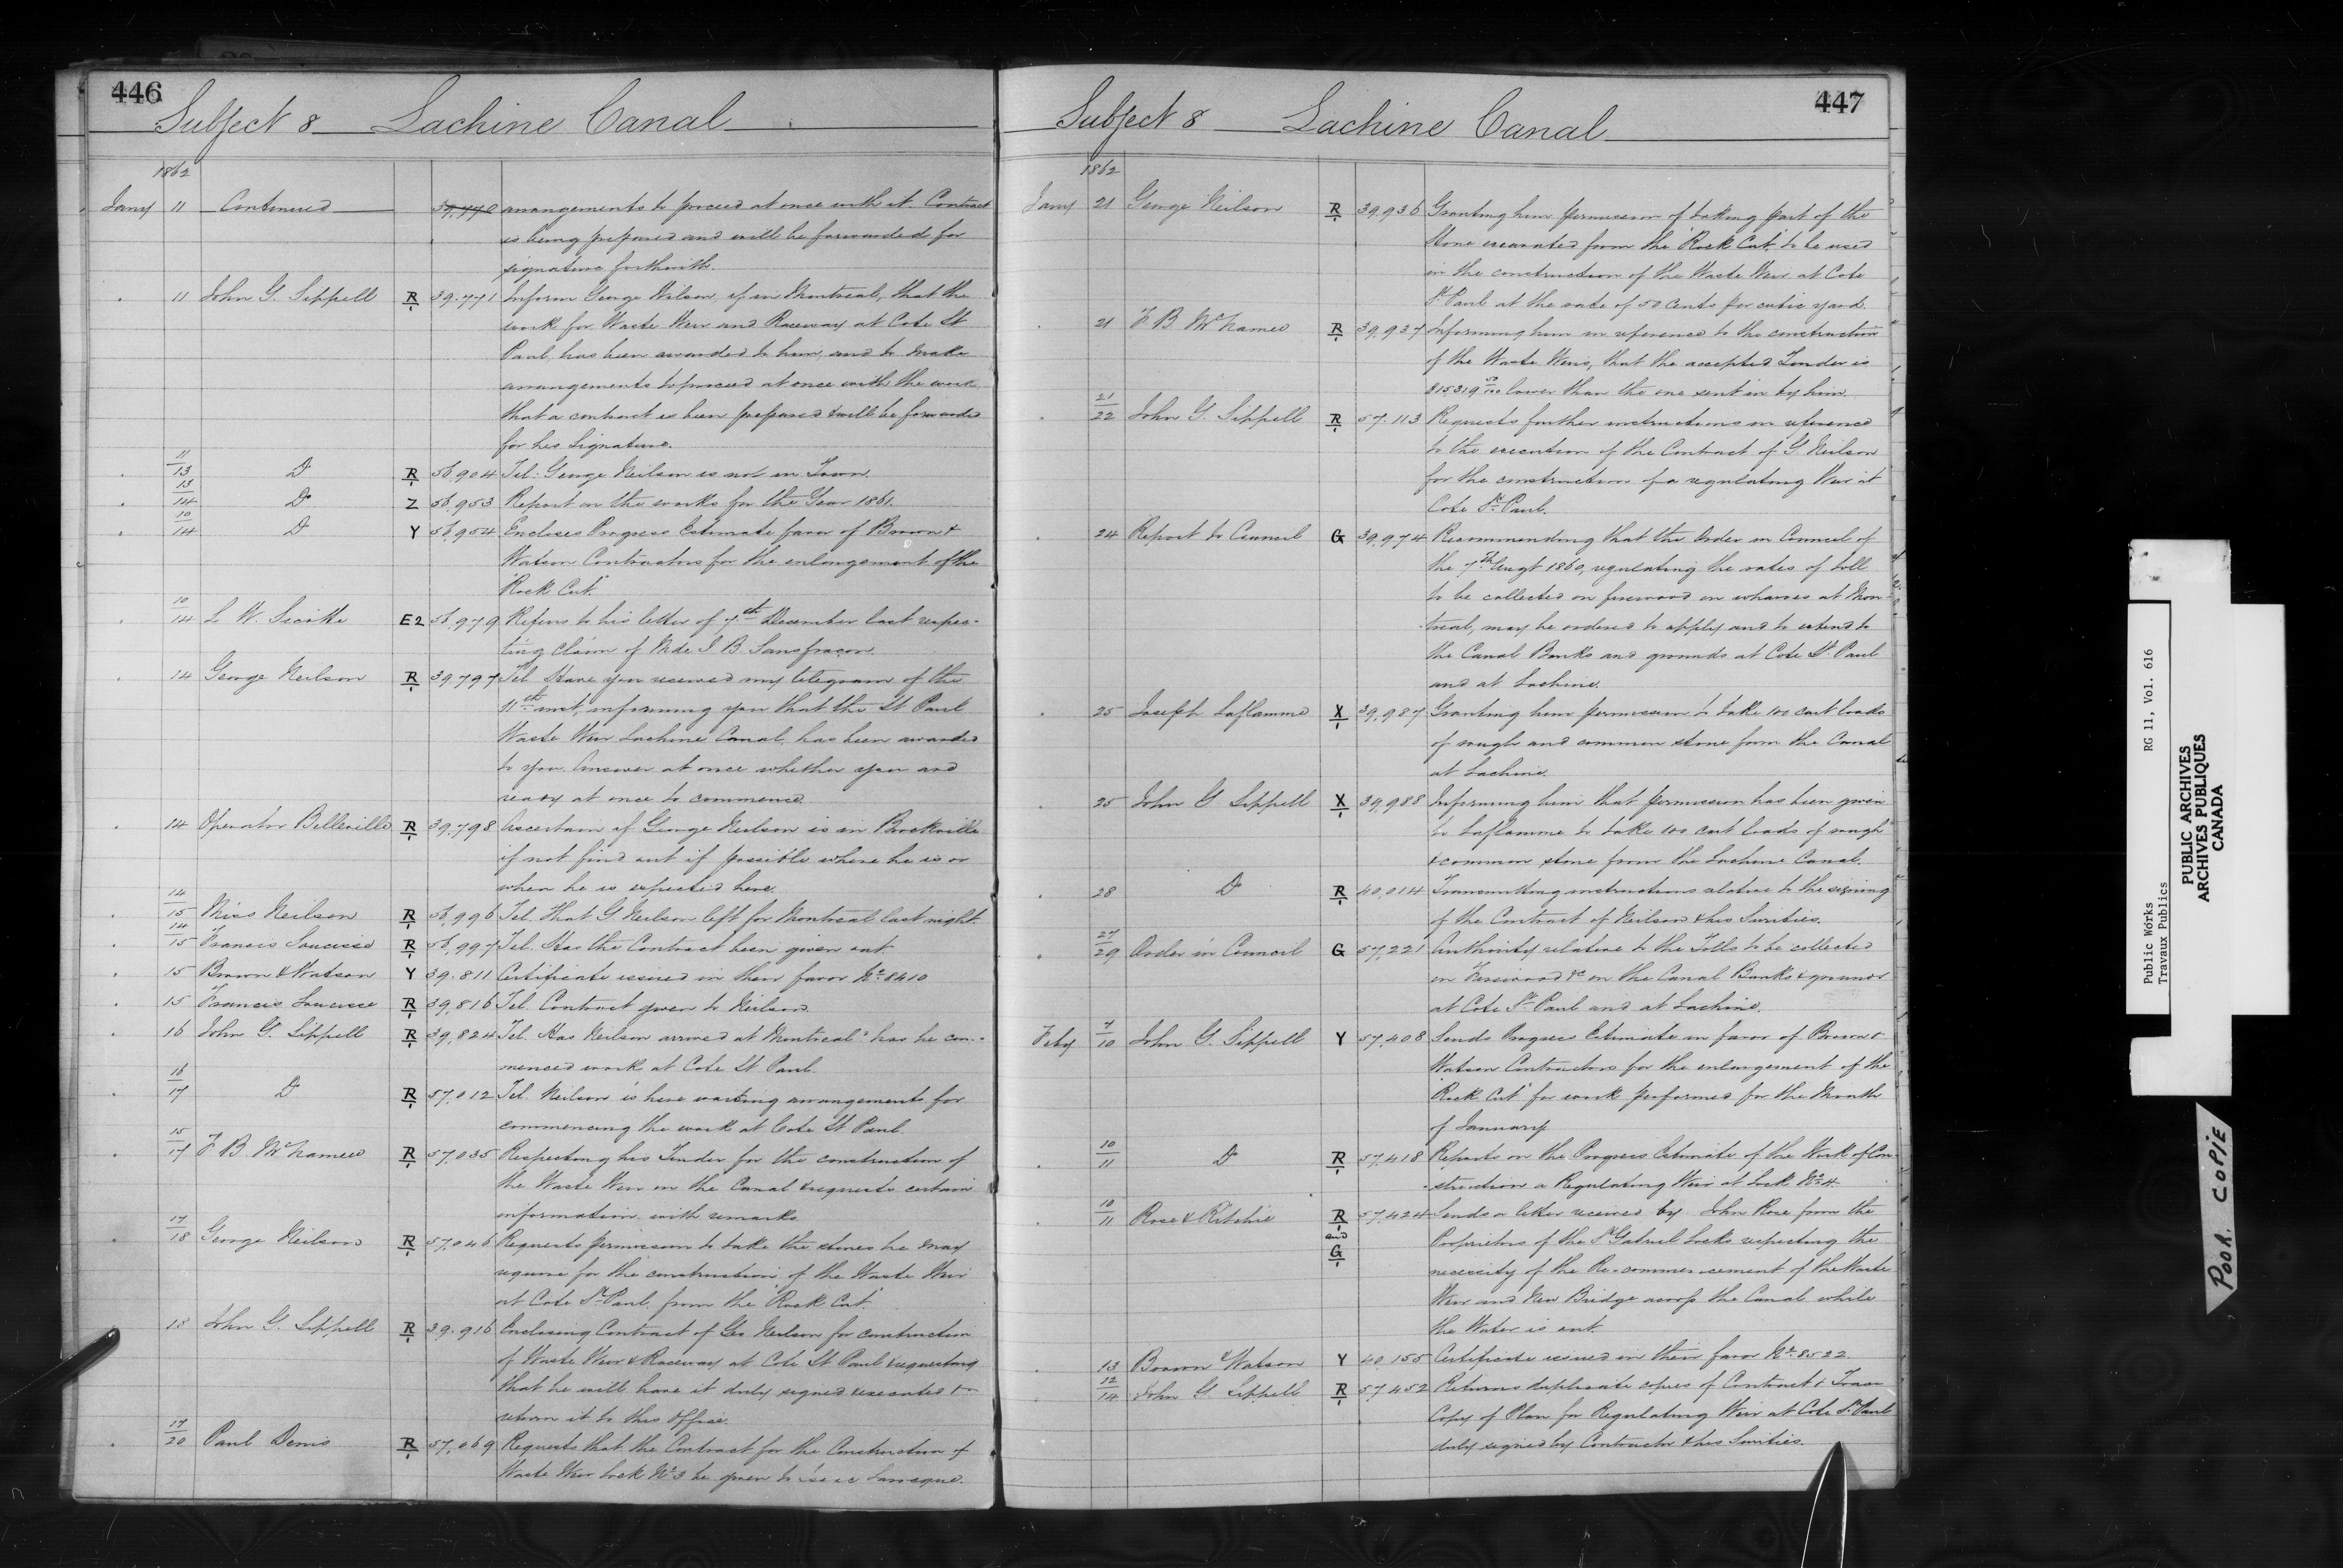 446
Subject 8 Lachine Canal
1862
Jany 11 Continued 39,770 arrangements to proceed at once with it. Contract
is being prepared and will be forwarded for
signature forthwith.
11 John G. Sippell R/1 39.771 Inform George Neilson, if in Montreal, that the
work for Waste Weir and Raceway at Cote St
Paul, has been awarded to him, and to make
arrangements to proceed at once with the work
that a contract is been prepared & will be forwarded
for his signature.
11/13 Do R/1 56,904 Tel: George Neilson is not in Town.
13/14 Do Z 56,953 Report on the works for the Year 1861.
10/14 Do Y 56,954 Encloses Progress Estimate favor of Brown &
Watson Contractors for the enlargement of the
"Rock Cut."
10/14 L. W. Sicotte E2 56,979 Refers to his letter of 7th December last respec-
ting claim of Mde J. B. Sansfacon.
14 George Neilson R/1 39,797 Tel. Have you received my telegram of the
11th inst, informing you that the St Paul
Waste Weir Lachine Canal, has been awarded
to you. Answer at once whether you are
ready at once to commence.
14 Operator Belleville R/1 39,798 Ascertain if George Neilson is in Brockville
if not find out if possible where he is or
when he is expected here.
14/15 Miss Neilson R/1 56,996 Tel. That G. Neilson left for Montreal last night.
14/15 Francis Saucisse R/1 56,997 Tel. Has the Contract been given out.
15 Brown & Watson Y 39.811 Certificate issued in their favor No. 8410
15 Francis Saucisse R/1 39,816 Tel. Contract given to Neilson.
16 John G. Sippell R/1 39,824 Tel. Has Neilson arrived at Montreal & has he com-
menced work at Cote St Paul.
16/17 Do R/1 57,012 Tel. Neilson is here making arrangements for
commencing the work at Cote St Paul.
15/17 F. B. McNamee R/1 57,035 Respecting his Tender for the construction of
the Waste Weir on the Canal & requests certain
information with remarks.
17/18 George Neilson R/1 57,046 Requests permission to take the stones he may
require for the construction of the Waste Weir
at Cote St Paul from the "Rock Cut."
18 John G. Sippell R/1 39.916 Enclosing Contract of Geo Neilson for construction
of Waste Weir & Raceway at Cote St Paul & requesting
that he will have it duly signed executed &
return it to this Office.
17/20 Paul Denis R/1 57,069 Requests that the Contract for the Construction of
Waste Weir Lock No 3 be given to
447
Subject 8 Lachine Canal
1862
Jany 21 George Neilson R/1 39,936 Granting him permission of taking part of the
stone excavated from the "Rock Cut," to be used
in the construction of the Waste Weir at Cote
St Paul at the rate of 50 Cents per cubic yard.
21 F. B. McNamee R/1 39,937 Informing him in reference to the construction
of the Waste Weirs, that the accepted Tender is
lower than the one sent in by him.
21/22 John G. Sippell R/1 57.113 Requests further instructions in reference
to the execution of the Contract of G. Neilson
for the construction of a regulating Weir at
Cote St Paul.
24 Report to Council G 39,974 Recommending that the Order in Council of
the 7th Augt 1860, regulating the rates of toll
to be collected on firewood on wharves at Mon-
-treal, may be ordered to apply and to extend to
the Canal Banks and grounds at Cote St Paul
and at Lachine.
25 Joseph Laflamme X/1 39,987 Granting him permission to take 100 cart loads
of rough and common stone from the Canal
at Lachine.
25 John G Sippell X/1 39,988 Informing him that permission has been given
to Laflamme to take 100 cart loads of rough
& common stone from the Lachine Canal.
28 Do R/1 40,014 Transmitting instructions relative to the signing
of the Contract of Neilson & his Sureties.
27/29 Order in Council G 57,221 Authority relative to the Tolls to be collected
on Firewood &c on the Canal Banks & grounds
at Cote St Paul and at Lachine.
Feby 7/10 John G. Sippell Y 57,408 Sends Progress Estimate in favor of Brown &
Watson Contractors for the enlargement of the
"Rock Cut" for work performed for the Month
of January.
10/11 Do R/1 57,418 Reports on the Progress Estimate of the Work of Con-
-struction a Regulating Weir at Lock No 4.
10/11 Rose & Ritchie R/1 and G/1 57,424 Sends a letter received by John Rose from the
Proprietors of the St Gabriel Locks respecting the
necessity of the Re-commencement of the Waste
Weir and New Bridge across the Canal while
the Water is out.
13 Brown & Watson Y 40,155 Certificate issued in their favor No. 8522
12/14 John G. Sippell R/1 57,452 Returns duplicate copies of Contract &
Copy of Plan for Regulating Weir at Cote St Paul
duly signed by Contractor & his Sureties.
Public Works RG 11, Vol. 616
Travaux Publics
PUBLIC ARCHIVES
ARCHIVES PUBLIQUES
CANADA
POOR. COPIE